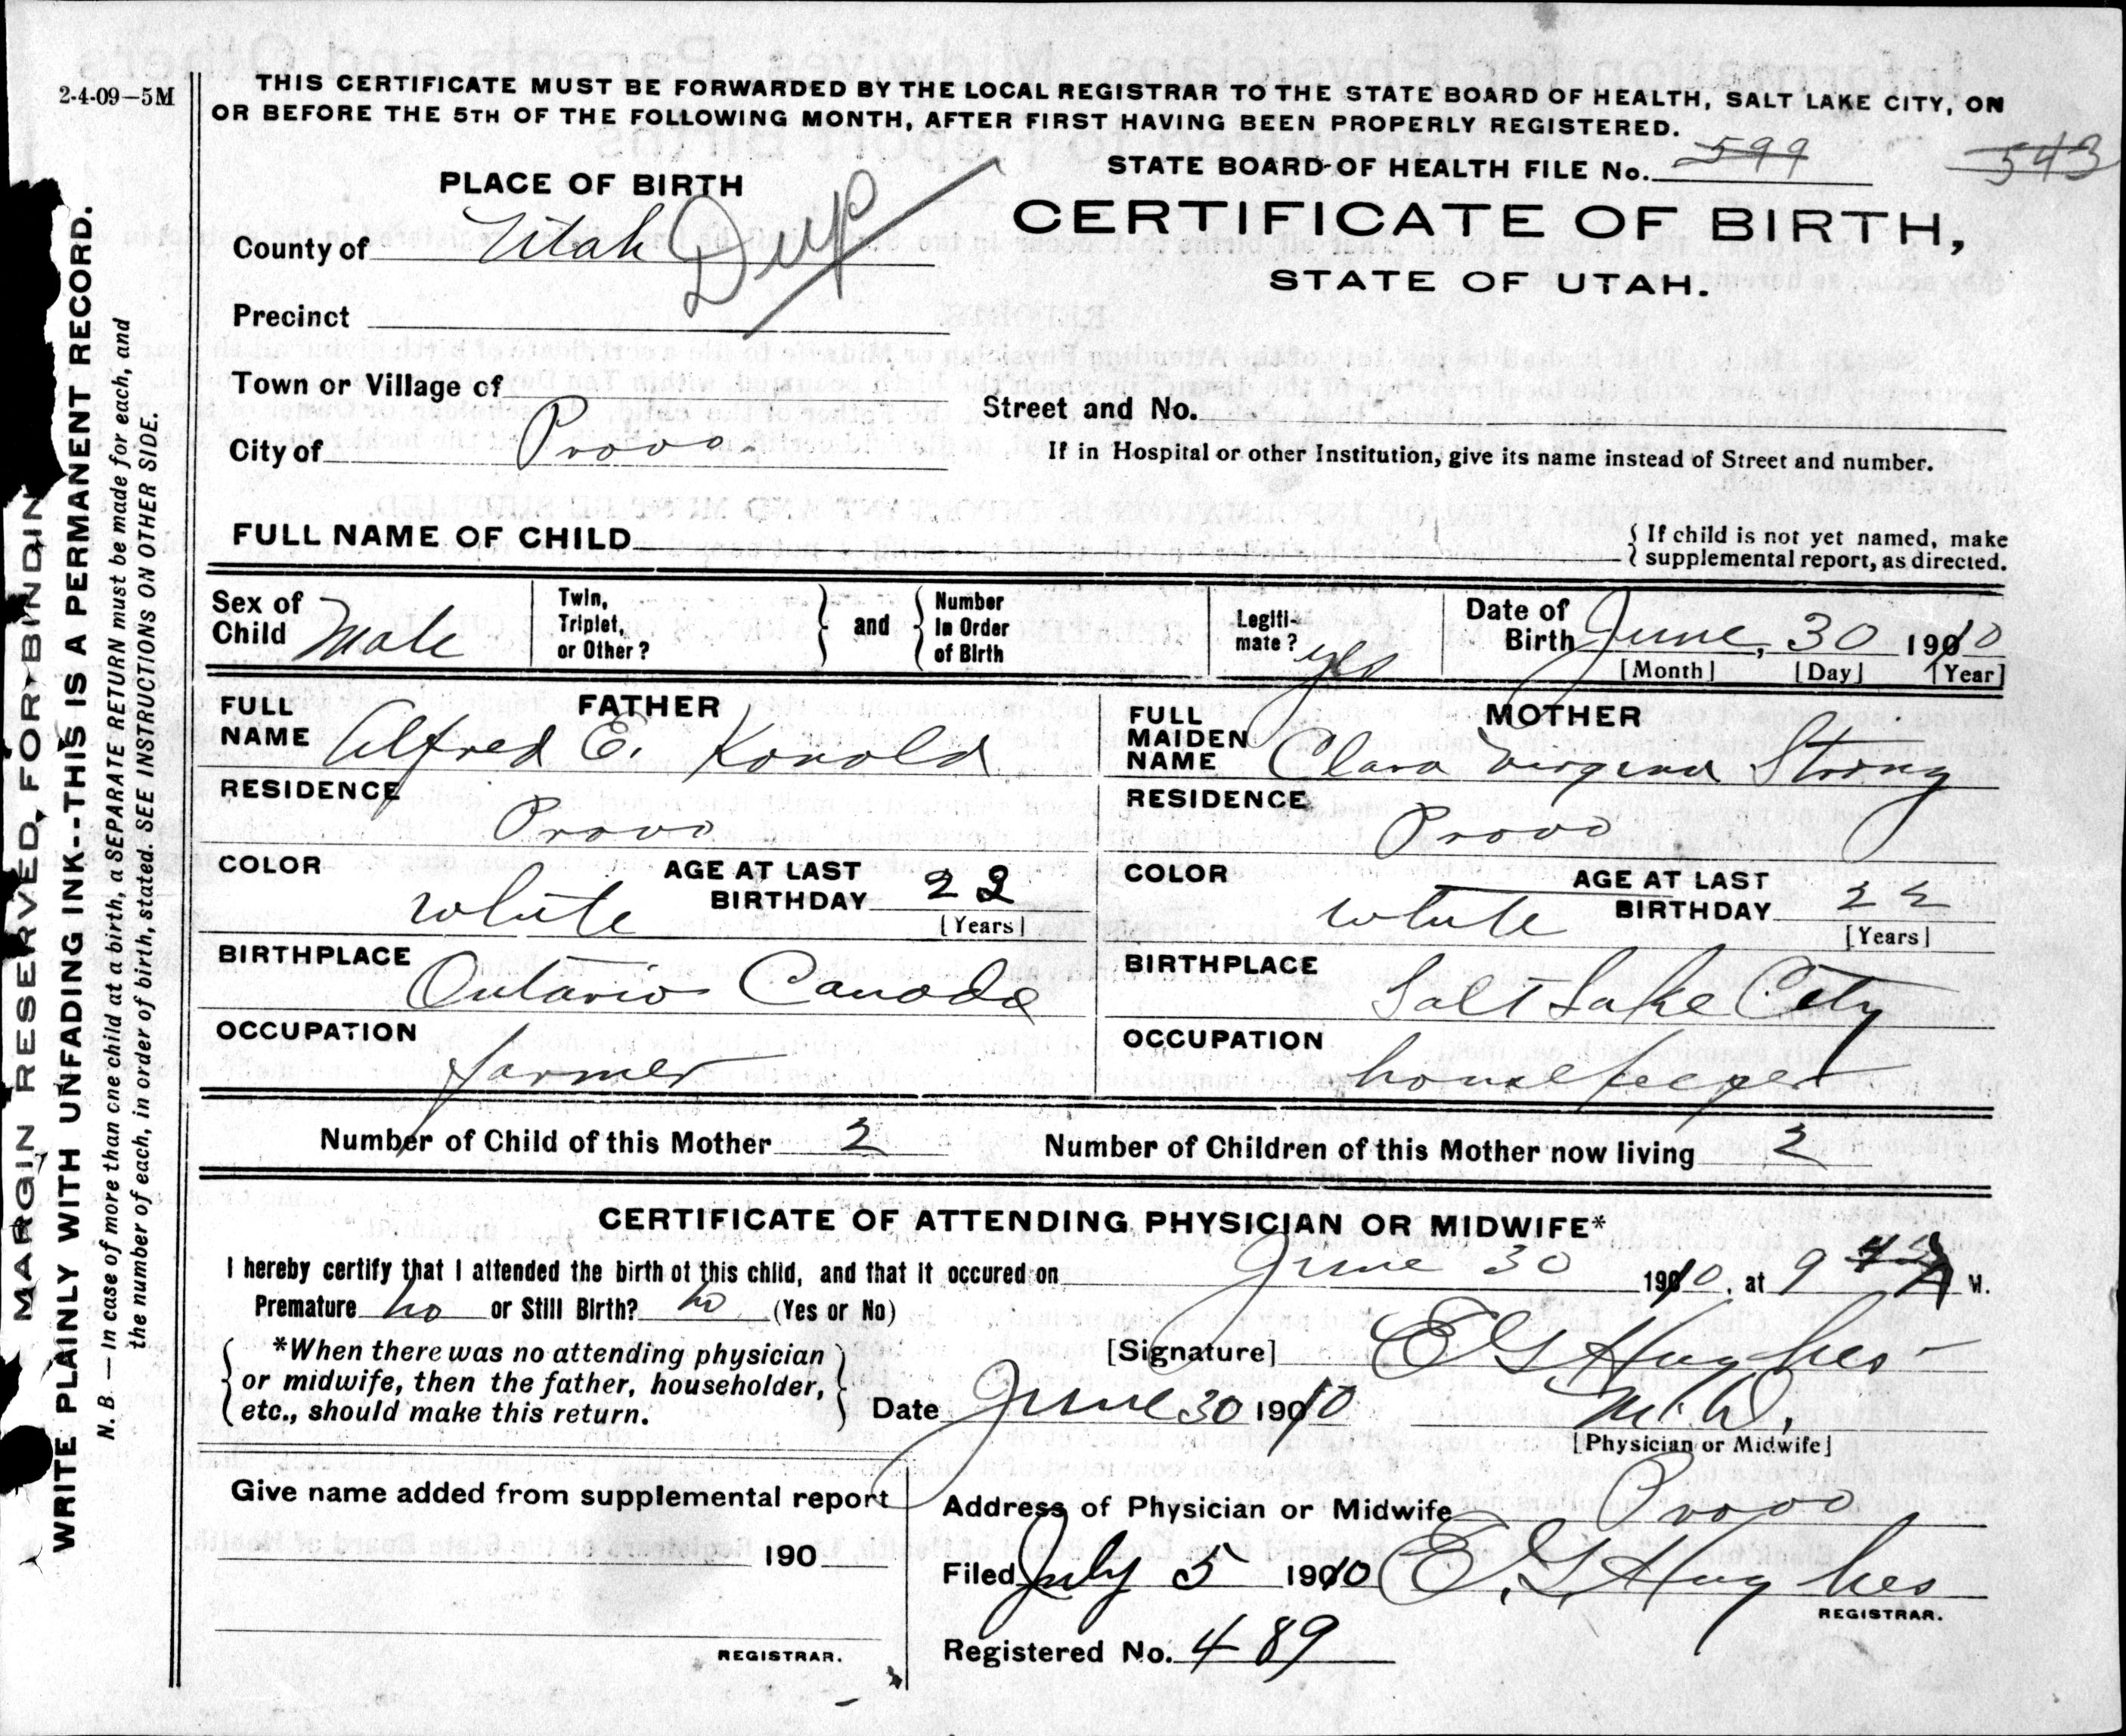 2-4-09-5M
THIS CERTIFICATE MUST BE FORWARDED BY THE LOCAL REGISTRAR TO THE STATE BOARD OF HEALTH, SALT LAKE CITY, ON
OR BEFORE THE 5TH OF THE FOLLOWING MONTH, AFTER FIRST HAVING BEEN PROPERLY REGISTERED.
STATE BOARD OF HEALTH FILE No. 599 543
PLACE OF BIRTH
CERTIFICATE OF BIRTH,
STATE OF UTAH.
County of Utah Dup
Precinct
Town or Village of
Street and No.
City of Provo
If in Hospital or other Institution, give its name instead of Street and number.
FULL NAME OF CHILD
{ If child is not yet named, make
{ supplemental report, as directed.
Sex of Child Male
Twin, Triplet, or Other? } and { Number In Order of Birth
Legiti-mate? yes
Date of Birth June, 30 1910
[Month] [Day] [Year]
FATHER
FULL NAME Alfred E. Konold
RESIDENCE
Provo
COLOR white AGE AT LAST BIRTHDAY 22
[Years]
BIRTHPLACE
Ontario Canada
OCCUPATION
farmer
MOTHER
FULL MAIDEN NAME Clara Virginia Strong
RESIDENCE
Provo
COLOR white AGE AT LAST BIRTHDAY 22
[Years]
BIRTHPLACE
Salt Lake City
OCCUPATION
housekeeper
Number of Child of this Mother 2 Number of Children of this Mother now living 2
CERTIFICATE OF ATTENDING PHYSICIAN OR MIDWIFE*
I hereby certify that I attended the birth of this child, and that it occured on June 30 1910, at 9 A M.
Premature no or Still Birth? no (Yes or No)
*When there was no attending physician
or midwife, then the father, householder,
etc., should make this return.
[Signature] E G Hughes
M.D.
Date June 30 1910
[Physician or Midwife]
Give name added from supplemental report
190
REGISTRAR.
Address of Physician or Midwife Provo
Filed July 5 1910 E. G. Hughes
REGISTRAR.
Registered No. 489
MARGIN RESERVED FOR BINDIN
WRITE PLAINLY WITH UNFADING INK--THIS IS A PERMANENT RECORD.
N. B. — In case of more than one child at a birth, a SEPARATE RETURN must be made for each, and
the number of each, in order of birth, stated. SEE INSTRUCTIONS ON OTHER SIDE.